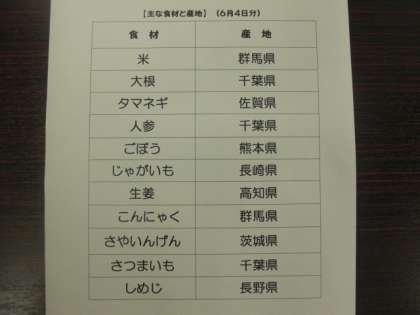 【主な食材と産地】 (6月4日分)
食 材 産 地
米 群馬県
大根 千葉県
タマネギ 佐賀県
人参 千葉県
ごぼう 熊本県
じゃがいも 長崎県
生姜 高知県
こんにゃく 群馬県
さやいんげん 茨城県
さつまいも 千葉県
しめじ 長野県